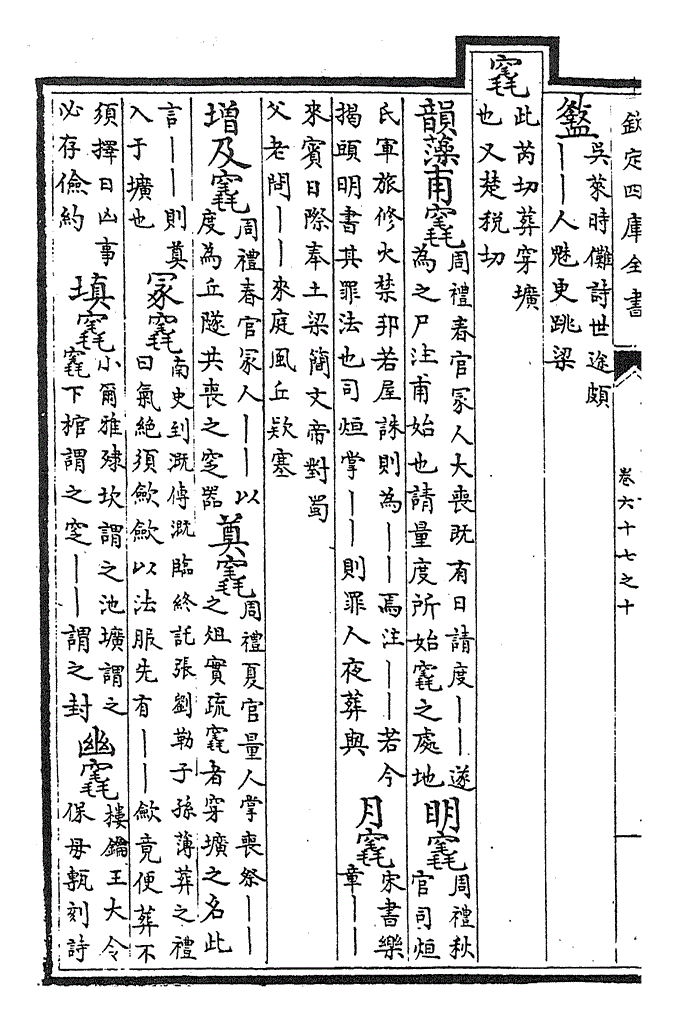 欽定四庫全書 卷六十七之十
吳萊時儺詩世途頗
——人魅更跳梁
竁
此芮切葬穿壙
也又楚稅切
韻藻甫竁
周禮春官冢人大喪既有日請度——遂
為之尸注甫始也請量度所始竁之處地
明竁
周禮秋
官司烜
氏軍旅修火禁邦若屋誅則為——焉注——若今
揭頭明書其罪法也司烜掌——則罪人夜葬與
月竁
宋書樂
章——
來賓日際奉土梁簡文帝對蜀
父老問——來庭風丘欵塞
增及竁
周禮春官冢人——以
度為丘隧共喪之窆器
奠竁
周禮夏官量人掌喪祭——
之俎實疏竁者穿壙之名此
言——則奠
入于壙也
冢竁
南史到溉傳溉臨終託張劉勒子孫薄葬之禮
曰氣絕須歛歛以法服先有——歛竟便葬不
須擇日凶事
必存儉約
填竁
小爾雅殔坎謂之池壙謂之
竁下棺謂之窆——謂之封
幽竁
摟鑰王大令
保母甎刻詩